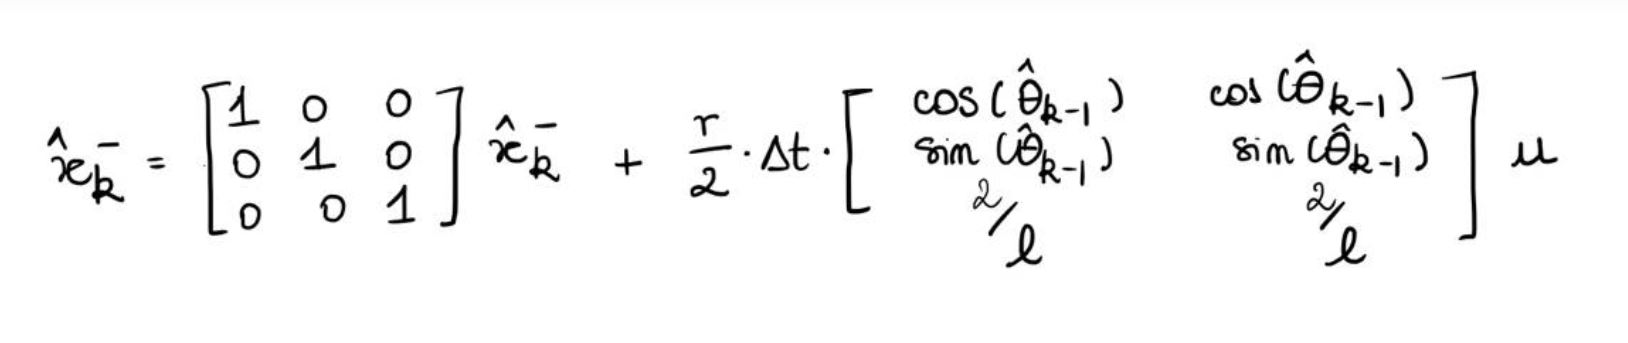 $\hat{x}_k^- = \begin{bmatrix} 1 & 0 & 0 \\ 0 & 1 & 0 \\ 0 & 0 & 1 \end{bmatrix} \hat{x}_k^- + \frac{r}{2} \cdot \Delta t \cdot \begin{bmatrix} \cos(\hat{\theta}_{k-1}) & \cos(\hat{\theta}_{k-1}) \\ \sin(\hat{\theta}_{k-1}) & \sin(\hat{\theta}_{k-1}) \\ 2/l & 2/l \end{bmatrix} u$